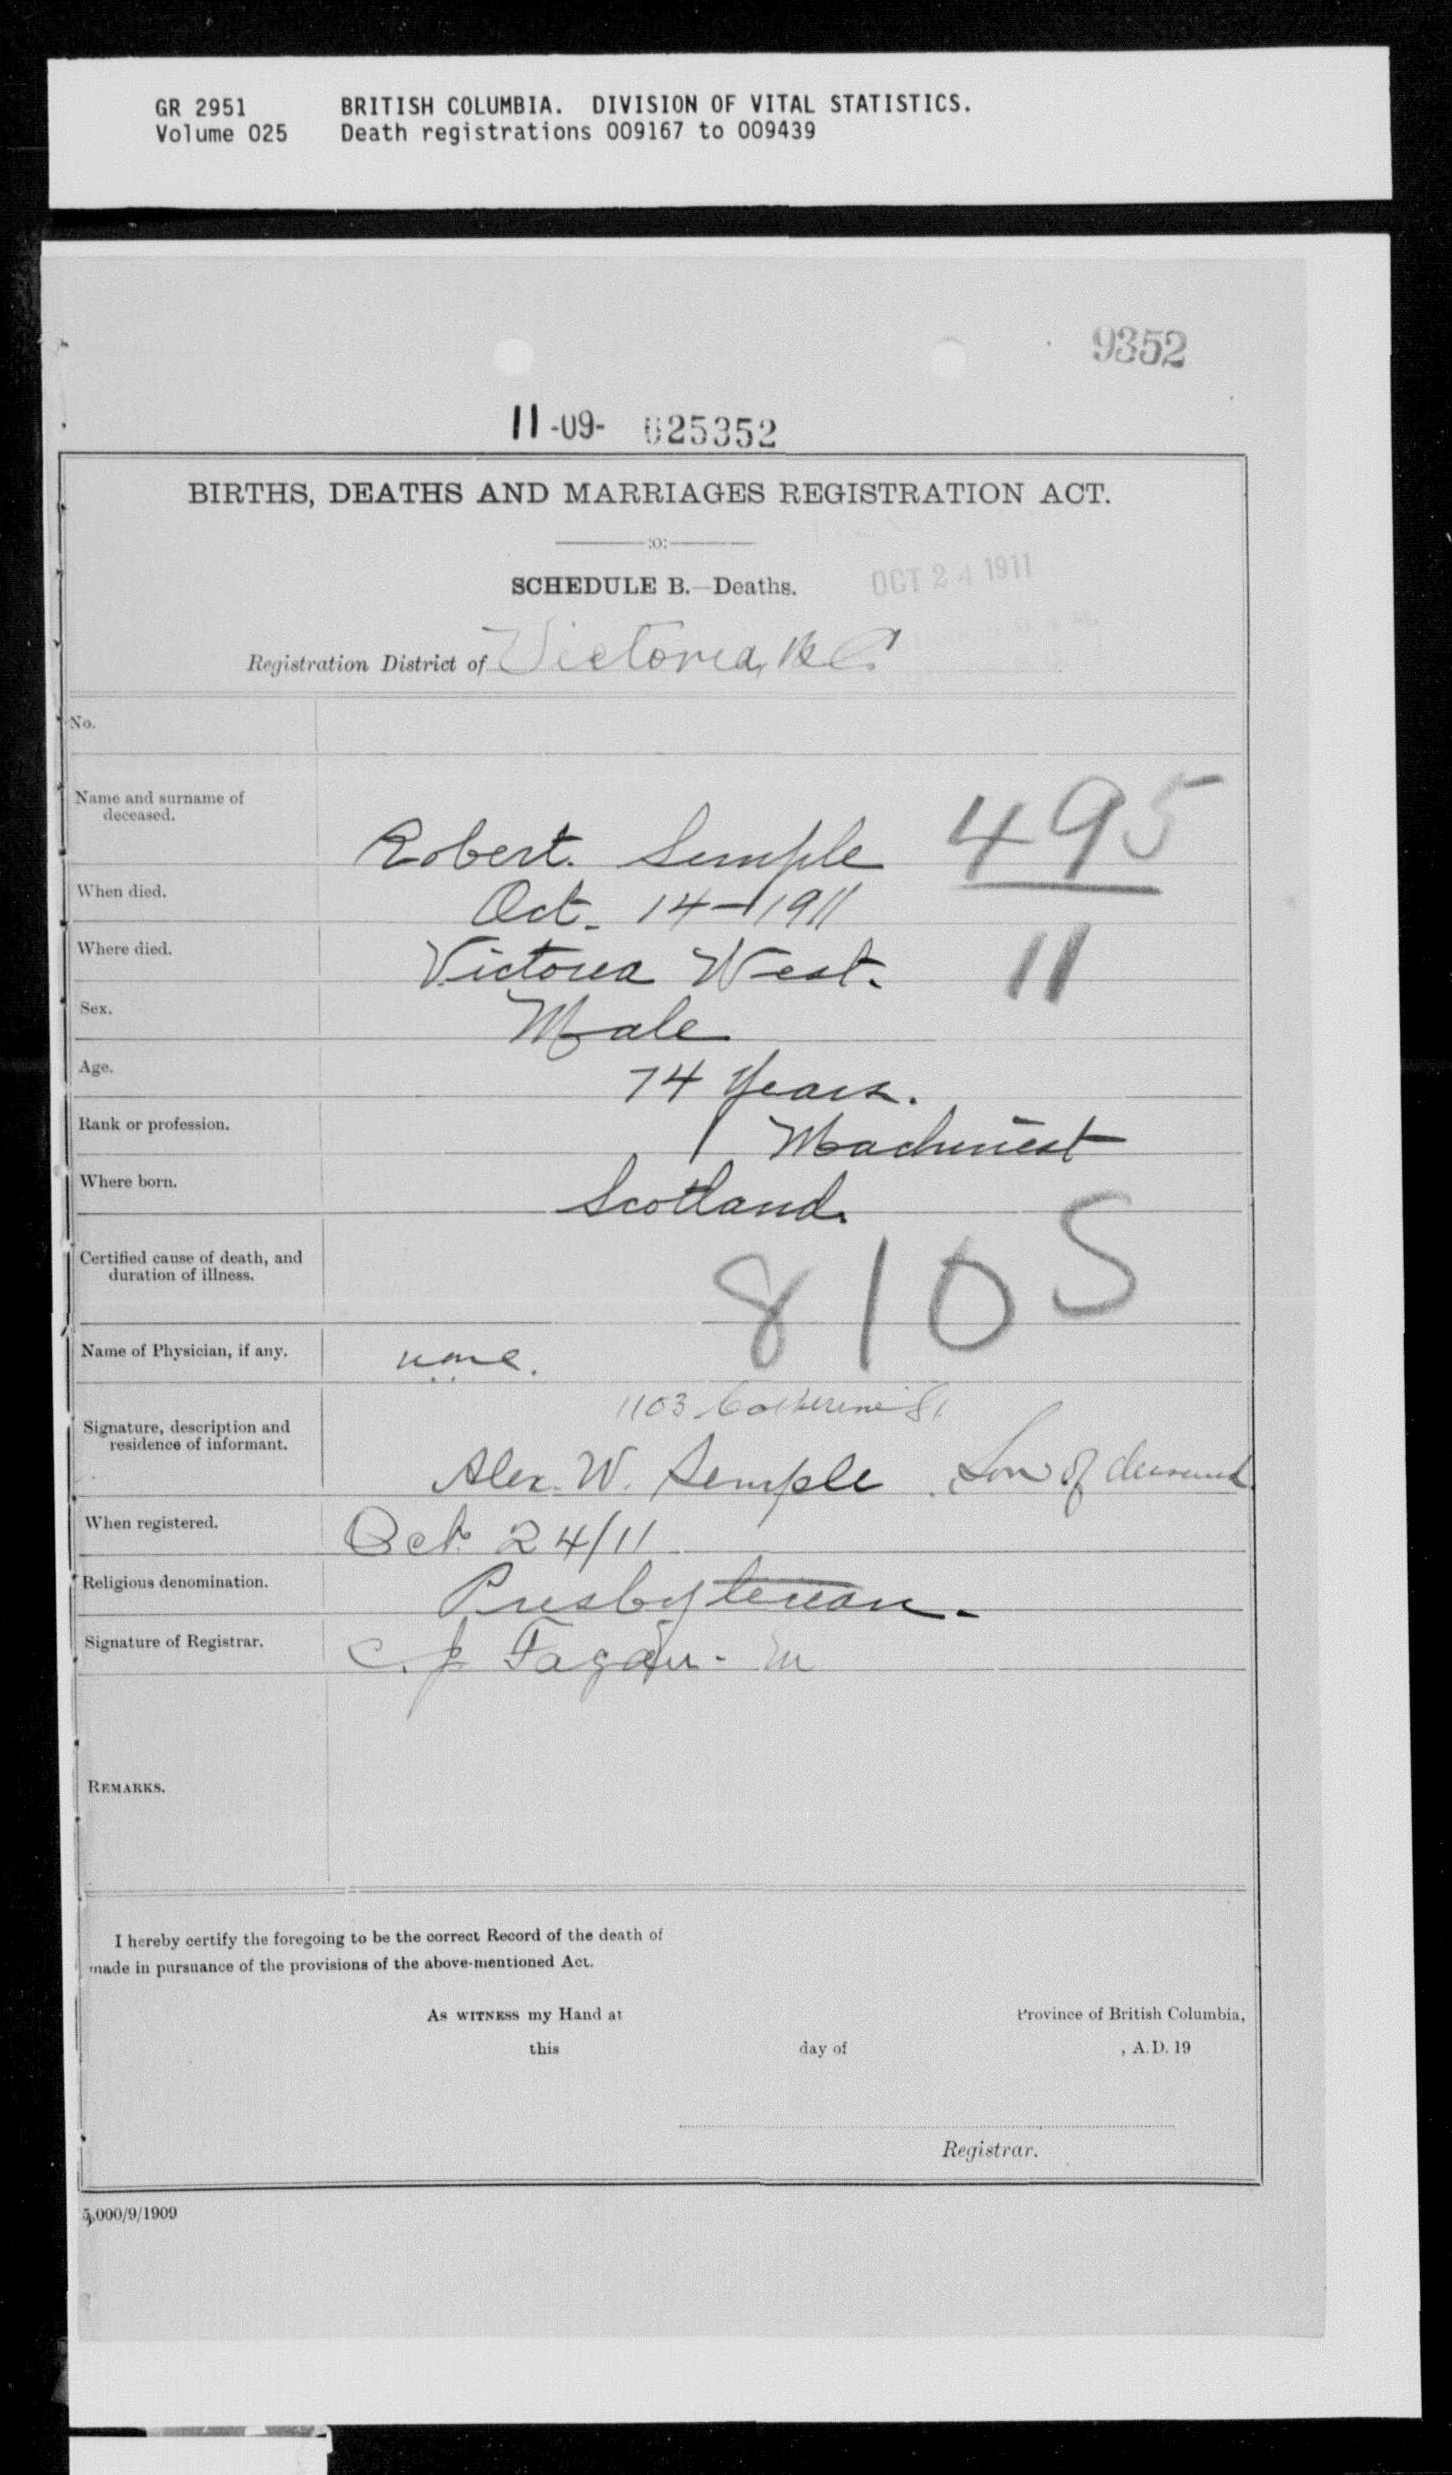 GR 2951 BRITISH COLUMBIA. DIVISION OF VITAL STATISTICS.
Volume 025 Death registrations 009167 to 009439
9352
11-09- 025352
BIRTHS, DEATHS AND MARRIAGES REGISTRATION ACT.
:o:
SCHEDULE B.—Deaths.
OCT 24 1911
Registration District of Victoria, B.C.
No.
Name and surname of
deceased.
Robert. Semple 495
When died. Oct. 14-1911
Where died. Victoria West. 11
Sex. Male
Age. 74 Years.
Rank or profession. Machinist
Where born. Scotland.
Certified cause of death, and
duration of illness.
8105
Name of Physician, if any. none.
1103 Catherine St.
Signature, description and
residence of informant.
Alex. W. Semple. Son of deceased
When registered. Oct. 24/11
Religious denomination. Presbyterian.
Signature of Registrar. C. J. Fagan. m
REMARKS.
I hereby certify the foregoing to be the correct Record of the death of
made in pursuance of the provisions of the above-mentioned Act.
AS WITNESS my Hand at Province of British Columbia,
this day of , A.D. 19
Registrar.
5,000/9/1909